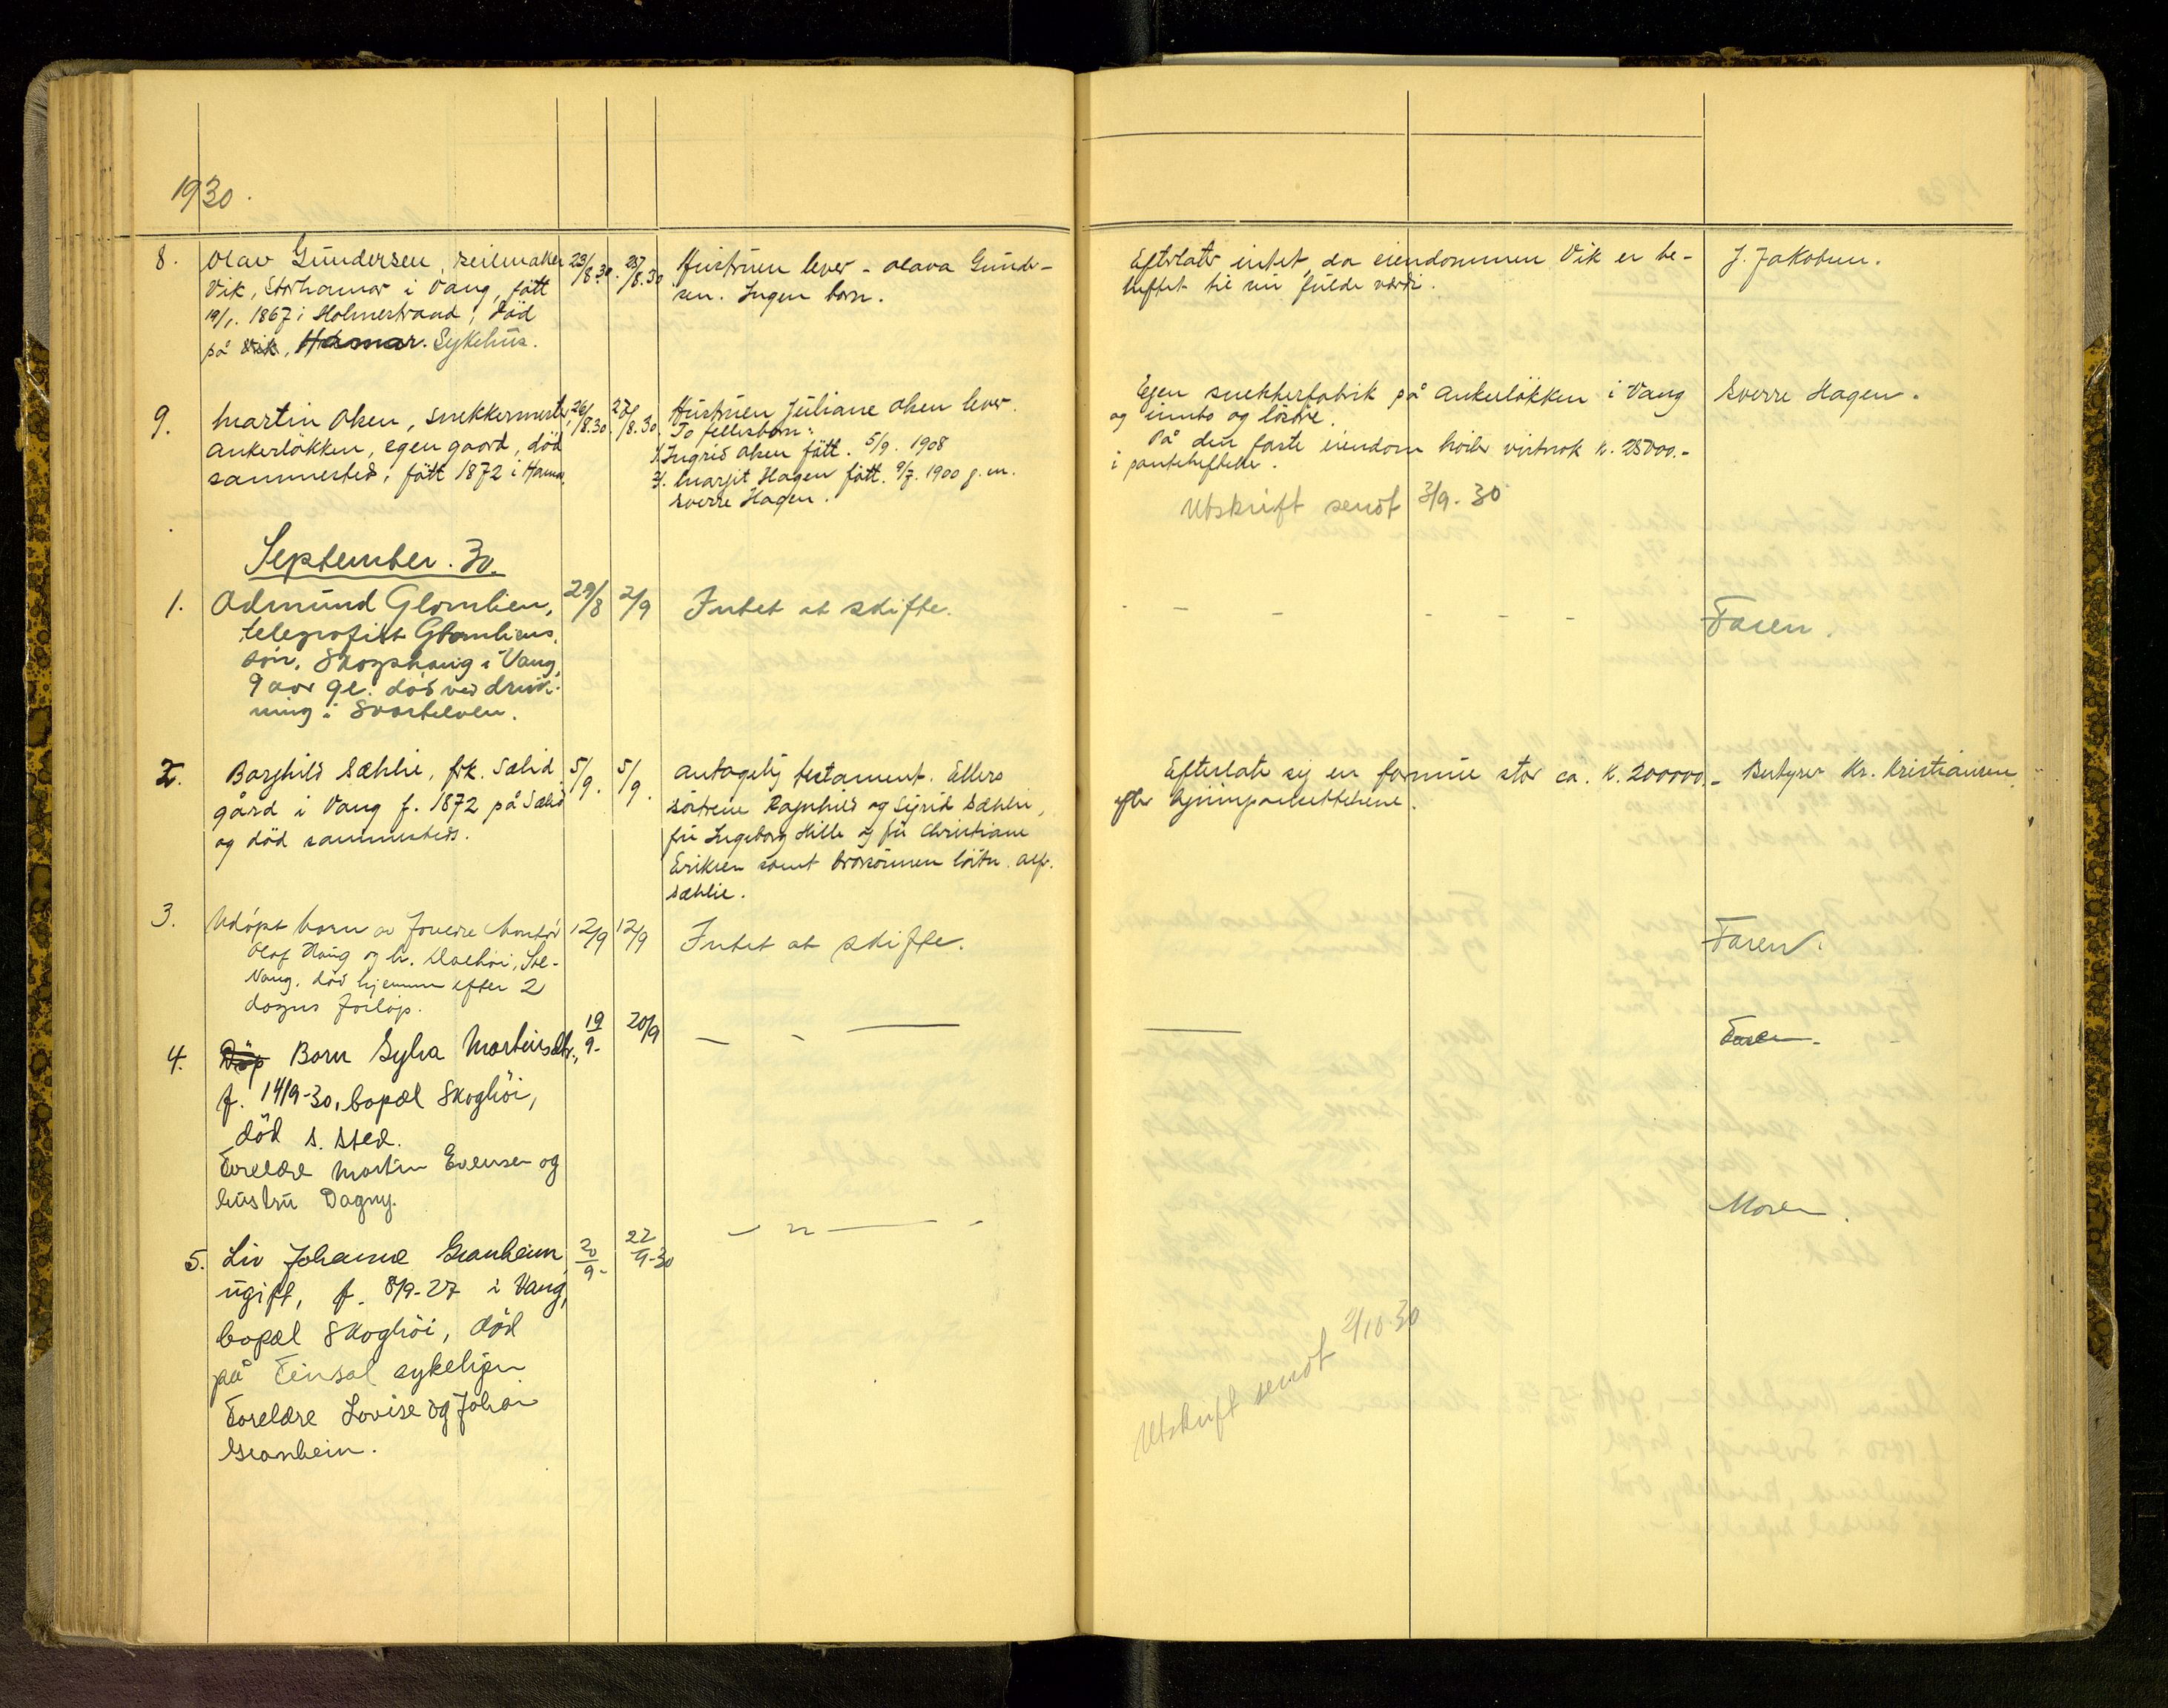 1930.
8. Olav Gundersen, seilmaker 23/8.30. 27/8.30 Hustruen lever - Olava Gunder-
Vik, Storhamar i Vang, fött sen. Ingen barn.
19/1. 1867 i Holmestrand, död
på Vik, Hamar. Sykehus.
Efterlater intet, da eiendommen Vik er be-
heftet til sin fulde værdi.
J. Jakobsen.
9. Martin Olsen, snekkermester, 26/8.30. 27/8.30. Hustruen Juliane Olsen lever.
Ankerlökken, egen gaard, död To fellesbarn:
sammested, fött 1872 i Hamar.
1. Ingrid Olsen fött. 5/9. 1908
2. Margit Hagen fött. 9/7. 1900 g.m.
Sverre Hagen.
Egen snekkerfabrik på Ankerlökken i Vang
og innbo og lösöre.
På den faste eiendom hviler visstnok kr. 25000.-
i panteheftelse.
Sverre Hagen.
Utskrift sendt 3/9. 30
September. 30.
1. Odmund Glomlien, 29/8 2/9 Intet at skifte. - - - - - - Faren.
telegrafist Glomliens
sön, Skogshaug i Vang,
9 aar gl. död ved druk-
ning i Svartelven.
2. Borghild Sæhlie, frk. Sælid 5/9. 5/9. Antagelig testament. Ellers
gård i Vang f. 1872 på Sælid söstrene Ragnhild og Sigrid Sæhlie,
og död sammesteds. fru Ingeborg Hille og fru Christiane
Eriksen samt brorsönnen löitn. Alf.
Sæhlie.
Efterlate sig en formue stor ca. kr. 200000.-
efter ligningsansettelsene.
Bestyrer Kr. Kristiansen
3. Udöpt barn av foreldre Montör 12/9 12/9 Intet at skifte. Faren.
Olaf Haug og h.
Vang. död hjemme efter 2
dögns forlöp.
4. Döp Barn Sylva Martinsdtr., 19/9- 20/9 - - — — Faren.
f. 14/9-30, bopæl Skoghöi,
död s. sted.
Foreldre Martin Evensen og
hustru Dagny.
5. Liv Johanne Granheim 20/9- 22/9-30 - " — - Moren.
ugift, f. 8/9-27 i Vang,
bopæl Skoghöi, död
på Finsal sykehjem
Foreldre Lovise og Johan
Granheim.
Utskrift sendt 2/10.30